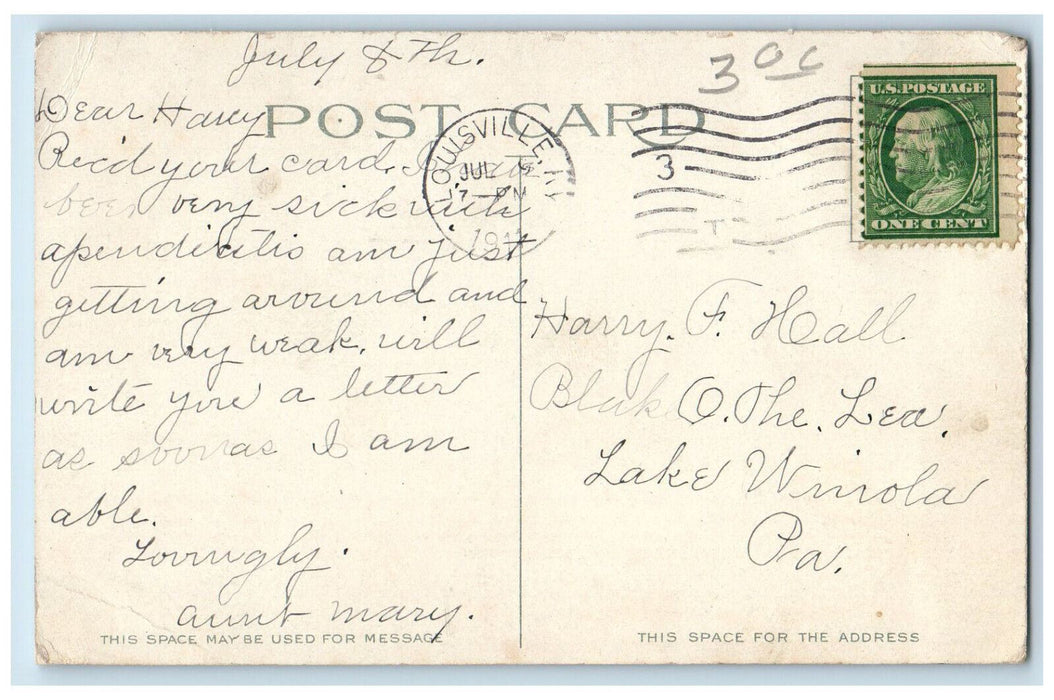 July 8 Th.
3 0c
Dear Harry
POST CARD
U.S. POSTAGE
ONE CENT
LOUISVILLE, KY
JUL
7—PM
191
3
Rec'd your card. I
been very sick with
apendicitis am just
getting around and
am very weak. will
write you a letter
as soon as I am
able.
Lovingly.
aunt mary.
THIS SPACE MAY BE USED FOR MESSAGE
Harry. F. Hall
O. The. Lea.
Lake Winola
Pa.
THIS SPACE FOR THE ADDRESS